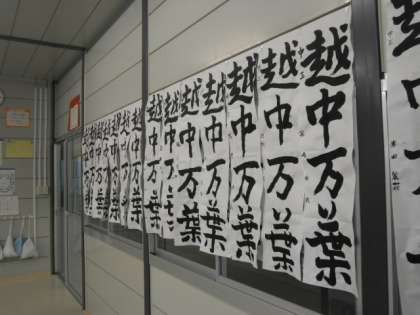 越中万葉
越中万葉
越中万葉
越中万葉
越中万葉
越中万葉
越中万葉
越中万葉
越中万葉
越中万葉
越中万葉
越中万葉